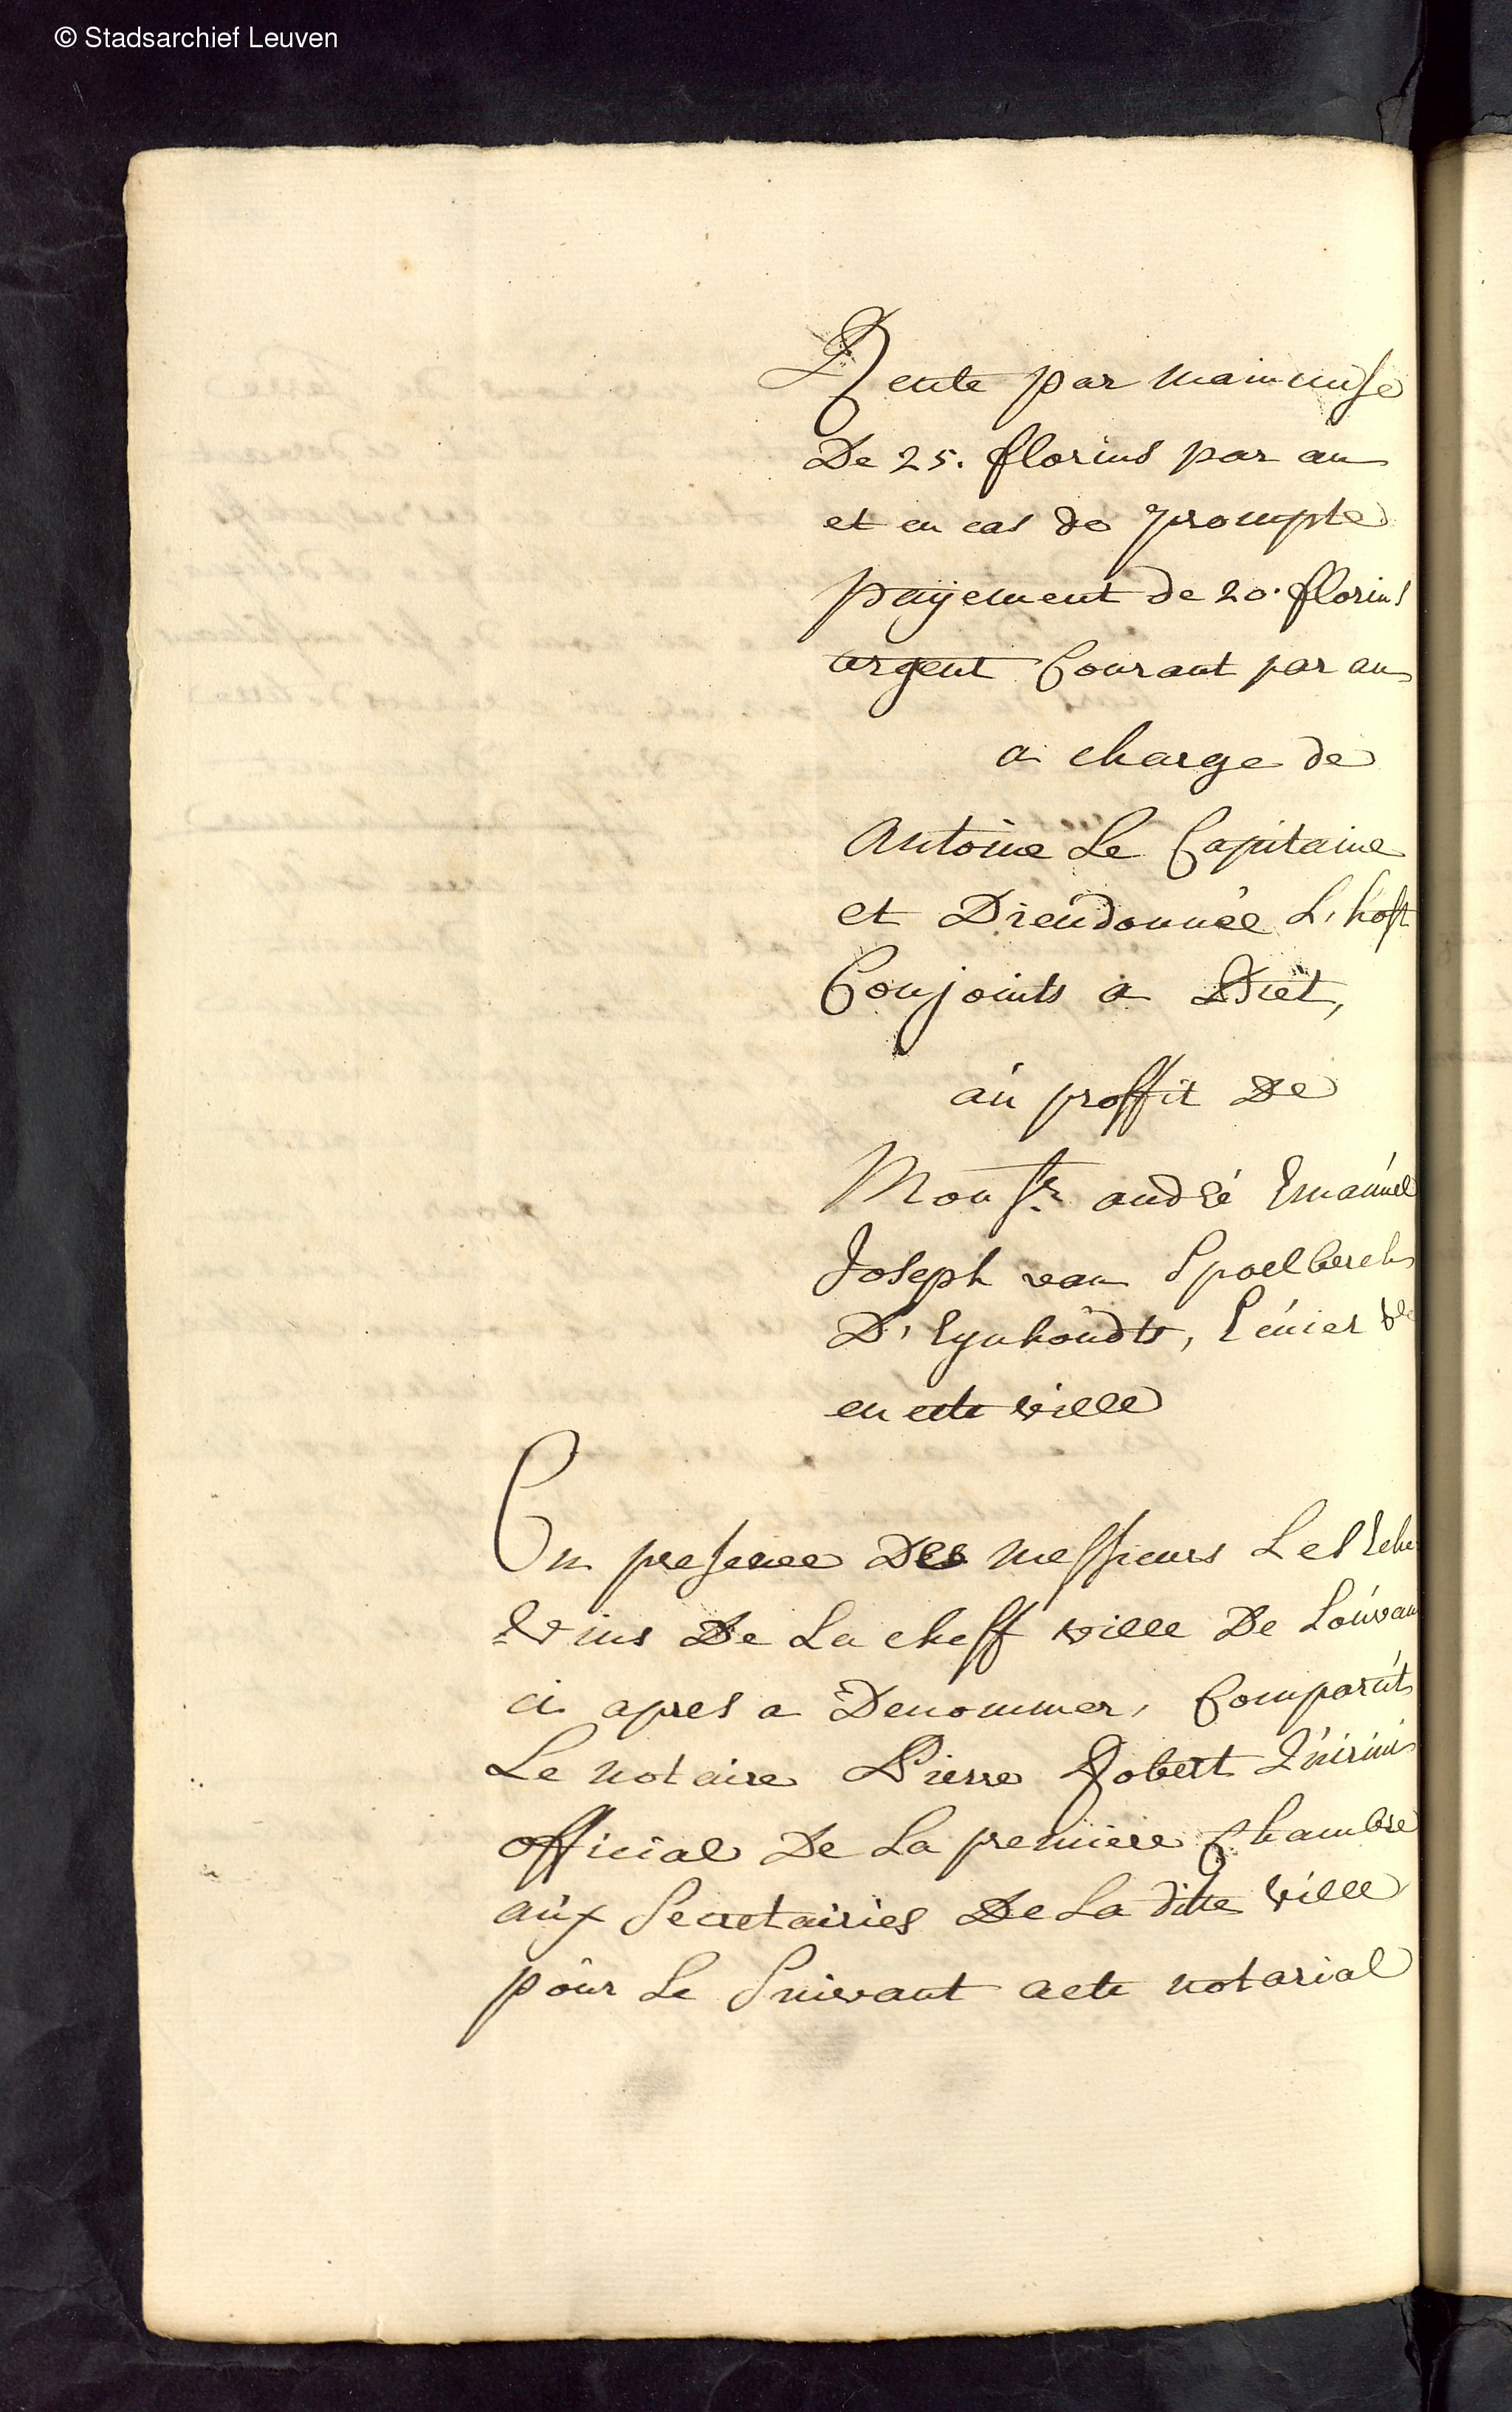 © Stadsarchief Leuven
Rente par main mise
De 25. florins par an
et en cas de prompte
payement de 20. florins
argent Courant par an
a charge de
Antoine Le Capitaine
et Dieudonnée L'host
Conjoints a Diet,
au proffit De
Monsr. andré Emanuel
Joseph van Spoelberch
D'Eynhoudts, Rentier
en cette ville
En presence Des messieurs Les Eche
=vins De La cheff ville De Louvain
ci apres a Denommer, Comparut
Le notaire Pierre Robert Quirini
official De La premiere Chambre
aux Secretairies De La ditte ville
pour Le Suivant acte notarial